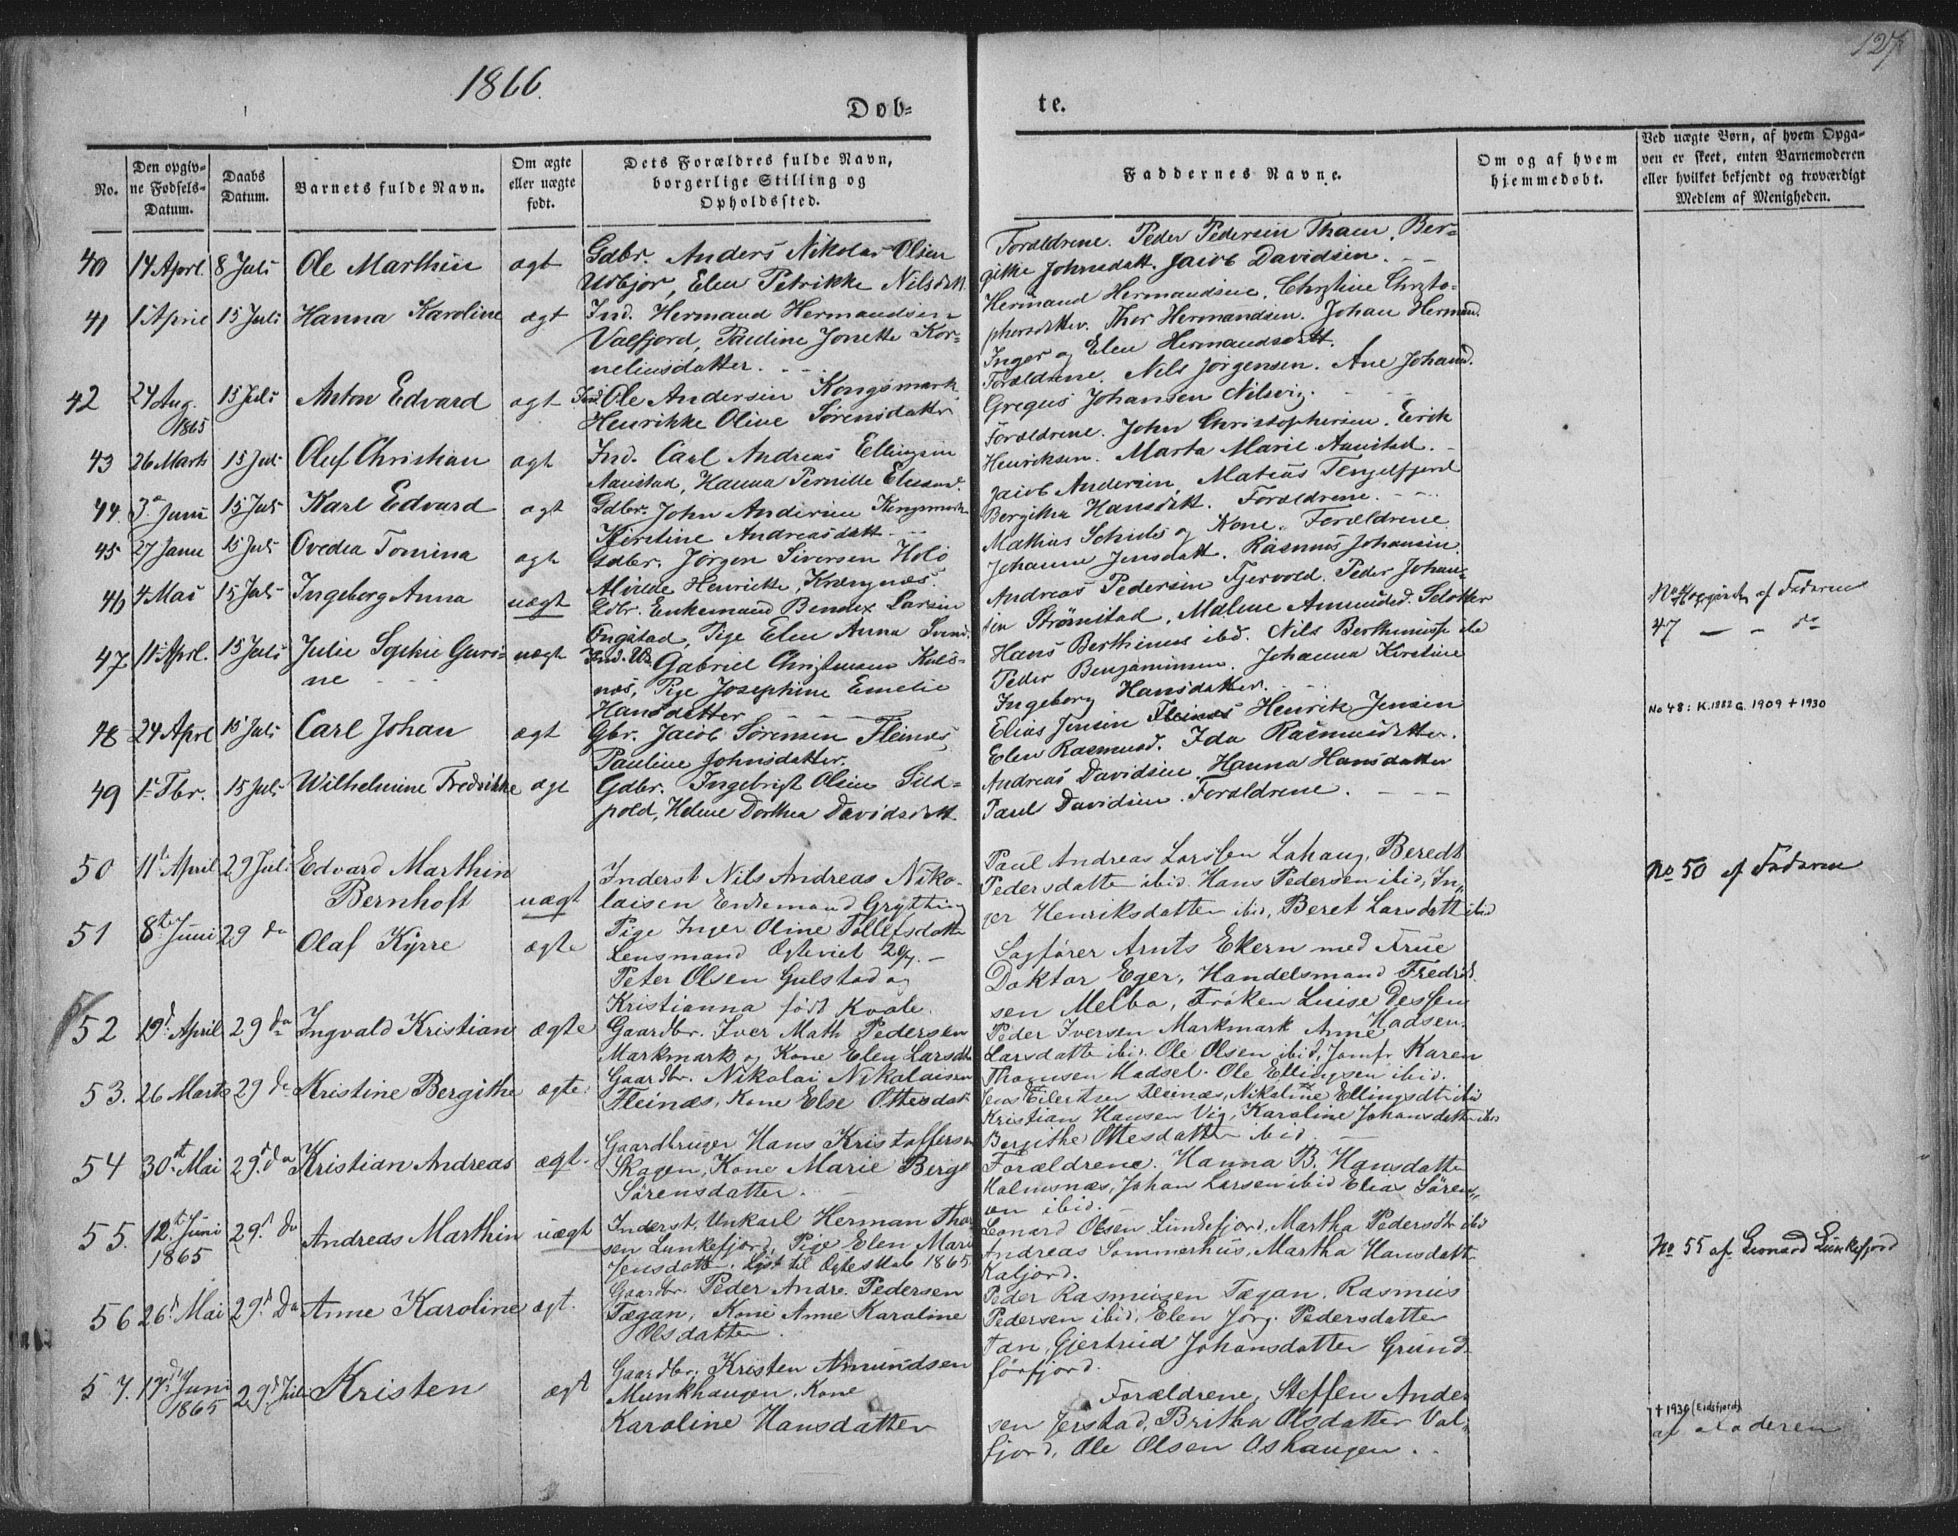 1866.
127
Døb=
te.
No.
Den opgiv-
ne Fødsels-
Datum.
Daabs
Datum.
Barnets fulde Navn.
Om ægte
eller uægte
født.
Dets Forældres fulde Navn,
borgerlige Stilling og
Opholdssted.
Faddernes Navne.
Om og af hvem
hjemmedøbt.
Ved uægte Børn, af hvem Opga-
ven er skeet, enten Barnemoderen
eller hvilket bekjendt og troværdigt
Medlem af Menigheden.
40 14 Aprl. 8 Juli Ole Marthin ægt Gdbr. Anders Nikolai Olsen
Udbjør, Elen Petrikke Nilsdtt.
Forældrene. Peder Pedersen Ber-
gitte Johnsdatt. Jacob Davidsen.
41 1 April 15 Juli Hanna Karoline ægt Ind. Hermand Hermandsen
Valfjord, Pauline Jonette Kor-
neliusdatter.
Hermand Hermandsen. Christine Chrsto-
phersdatter. Thor Hermandsen. Johan Hermand.
Inger og Elen Hermandsdtt.
42 24 Aug. 1865 15 Juli Anton Edvard ægt Ind. Ole Andersen Kongsmark
Henrikke Oline Sørensdatter
Forældrene. Nils Jørgensen. Ane Johansd.
Gregus Johansen Nilsvig.
43 26 Marts 15 Juli Oluf Christian ægt Ind. Carl Andreas Ellingsen
Aanstad, Hanna Pernille Elusd.
Forældrene. John Christophersen. Erik
Henriksen. Marta Marie Aanstad.
44. 3 Juni 15 Juli Karl Edvard ægt Gdbr. John Andersen Kongsmark
Kirstine Andreasdatt
Jacob Andersen, Matias Tengelfjord
Bergitha Hansdtt. Forældrene.
45 27 Janu 15 Juli Ovedea Tomina ægt Gdbr. Jørgen Siversen Holø
Alvilde Henriette, Krængnæs.
Mathias Schiels og Kone. Forældrene
Johanna Jensdatt. Rasmus Johansen.
46 4 Mai 15 Juli Ingeborg Anna uægt Gdbr. Enkemand Bendix Larsen
Ongstad, Pige Elen Anna Svend.
Andreas Pedersen Fjervold. Peder Johan-
sen Strømstad, Malene Amundsd. Slotter
Hans Berthinus ibid. Nils Berthinusse ibid
No 46 opgivet af Faderen
47 11 Aprl. 15 Juli Julie Sophie Guri-
ne uægt Ind. Uk Gabriel Christiansen Kuls-
næs, Pige Josephine Emelie
Hansdatter
Peder Benjaminsen. Johanna Kirstine
Ingeborg Hansdatter.
47 — - do
48 24 Aprl 15 Juli Carl Johan ægt Gbr. Jacob Sørensen Fleinæs,
Pauline Johnsdatter.
Elias Jensen Fleinæs Henrik Jensen
Elen Rasmusd. Ida Rasmusdatter.
No 48: K. 1882 G. 1909 + 1930
49 1 Fbr. 15 Juli Wilhelmine Fredrikke ægt Gdbr. Ingebrigt Olsen Sild-
pold, Helene Dorthea Davidsdtt.
Andreas Davidsen. Hanna Hansdatter
Paul Davidsen. Forældrene.
50 11te April 29 Juli Edvard Marthin
Bernhoft uægt Inderst Nils Andreas Niko-
laisen Enkemand Grytting
Pige Inger Oline Tollefsdatter
Paul Andreas Larssen Lahaug, Beredt
Pedersdatter ibid. Hans Pedersen ibid, In-
ger Henriksdatter ibid, Beret Larsdatt ibid
No 50 af Faderen
51 8te Juni 29 do Olaf Kyrre ægte Lensmand
Peter Olsen Gulstad og
Kristianna født Kvale.
Sagfører Arnts Ekern med Frue
Doktor Eger, Handelsmand Fredrik-
sen Melbo, Frøken Luise Dessen
Hadsen.
52 19d April 29 do Ingvald Kristian ægte Gaardbr. Iver Math Pedersen
Markmark og Kone Elen Larsdtt
Peder Iversen Markmark Anne
Larsdatter ibid. Ole Olsen ibid, Jomfr Karen
Thomsen Hadsel. Ole Ellingsen ibid.
53. 26 Marts 29 do Kristine Bergithe ægte. Gaardbr. Nikolai Nikolaisen
Fleinæs, Kone Else Ottesdatt
Jens Eilertsen Fleinæs, Nikoline Ellingsdt ibid
Kristian Hansen Vig, Karoline Johansdatter ibid
Bergithe Ottesdatter ibid
54 30te Mai 29d do Kristian Andreas ægt. Gaardbruger Hans Kristoffersen
Skagen, Kone Marie Berg
Sørensdatter.
Forældrene. Hanna B. Hansdatter
Holmsnæs, Johan Larsen ibid Elias Søren-
sen ibid.
55. 12te Juni
1865 29d do Andreas Marthin uægt Inderst, Unkarl Herman Thor-
sen Lunkefjord, Pige Elen Mari
Jensdatter. Lyst til Ægteskab 1865
Leonard Olsen Lunkefjord, Martha Pedersdtr ibid
Andreas Sommerhus, Martha Hansdatt
Kaljord.
No 55 af Leonard Lunkefjord
56 26d Mai 29d Do Anne Karoline ægt. Gaardbr Peder Andr. Pedersen
Tægan, Kone Anne Karoline
Olsdatter.
Peder Rasmusen Tægan. Rasmus
Pedersen ibid, Elen Jørg. Pedersdatter
Tan, Gjertrud Johansdatter Grund-
førfjord.
57. 17d Juni
1865 29d Juli Kristen ægt Gaardbr. Kristen Amundsen
Munkhaugen. Kone
Karoline Hansdatter
Forældrene, Steffen Ander-
sen Jerstad, Britha Olsdatter Val-
fjord, Ole Olsen Oshaugen.
+ 1930 (Eidsfjord)
af Faderen